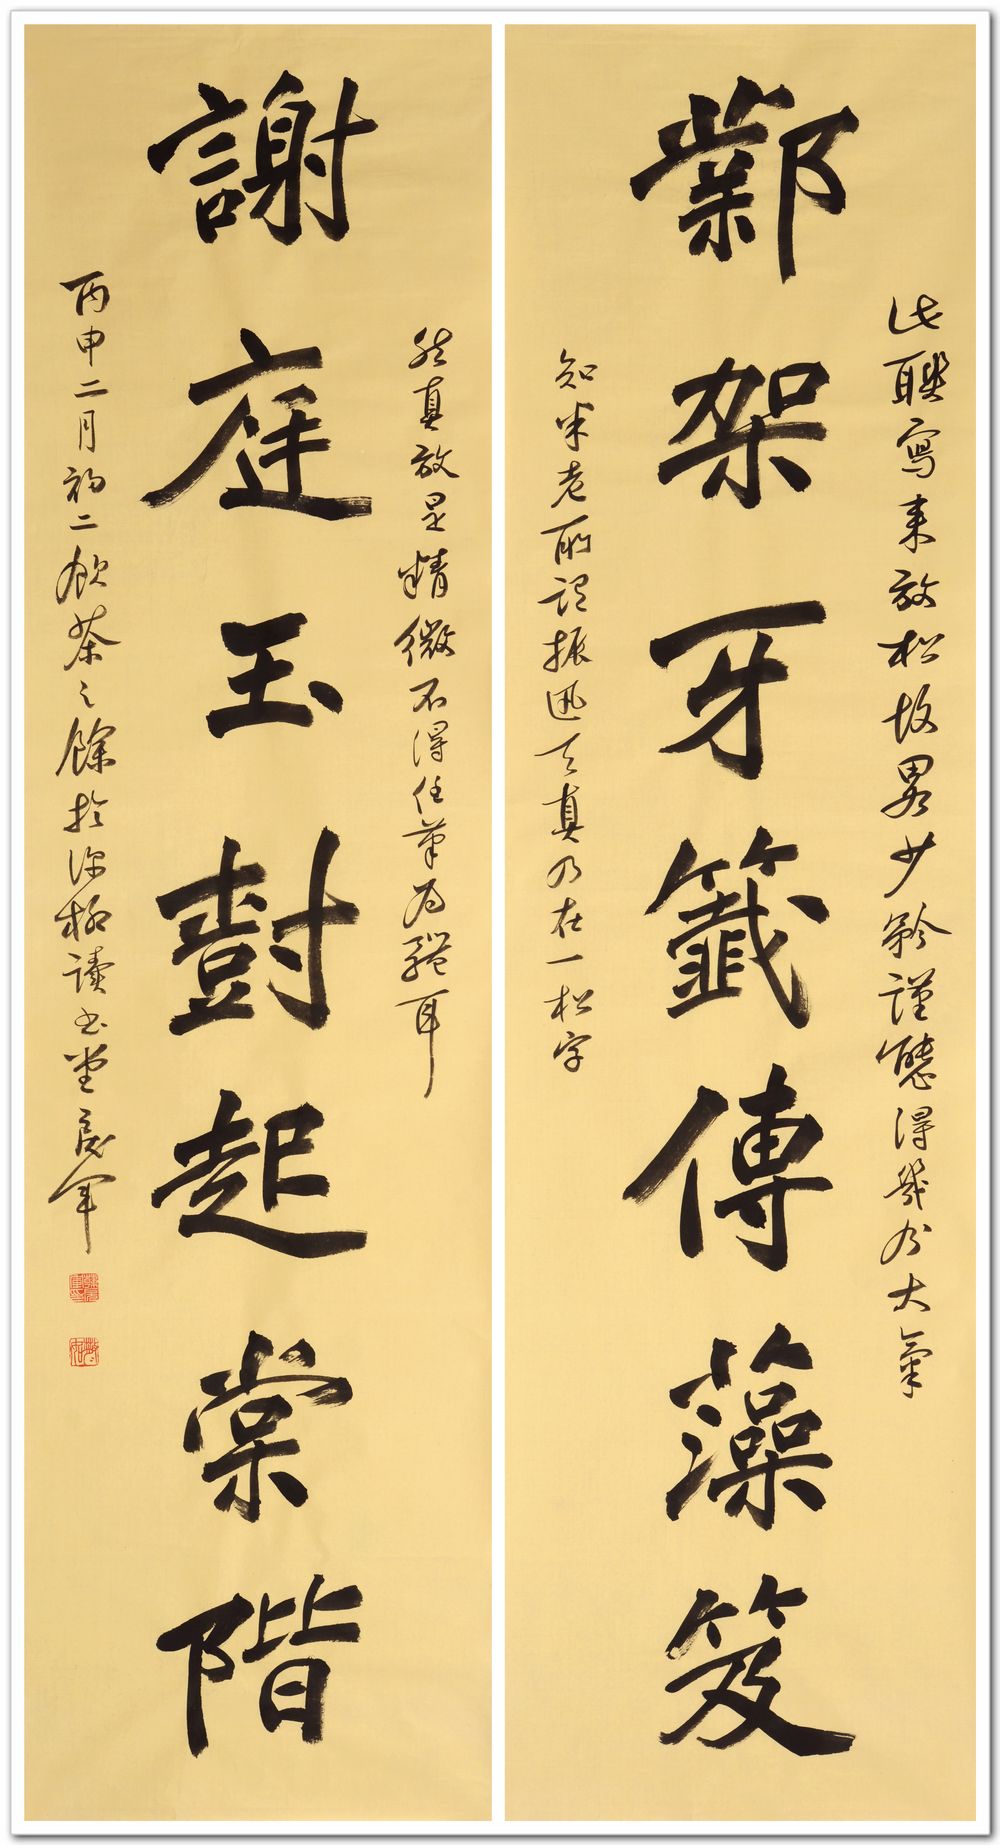 此聯寫來放松故畧少矜謹態得幾分大氣
鄴架牙籤傳藻笈
知米老所謂振迅天真乃在一松字
然真放是精微不得任筆為體耳
謝庭玉樹起棠階
丙申二月初二飲茶之餘於深柳讀書堂